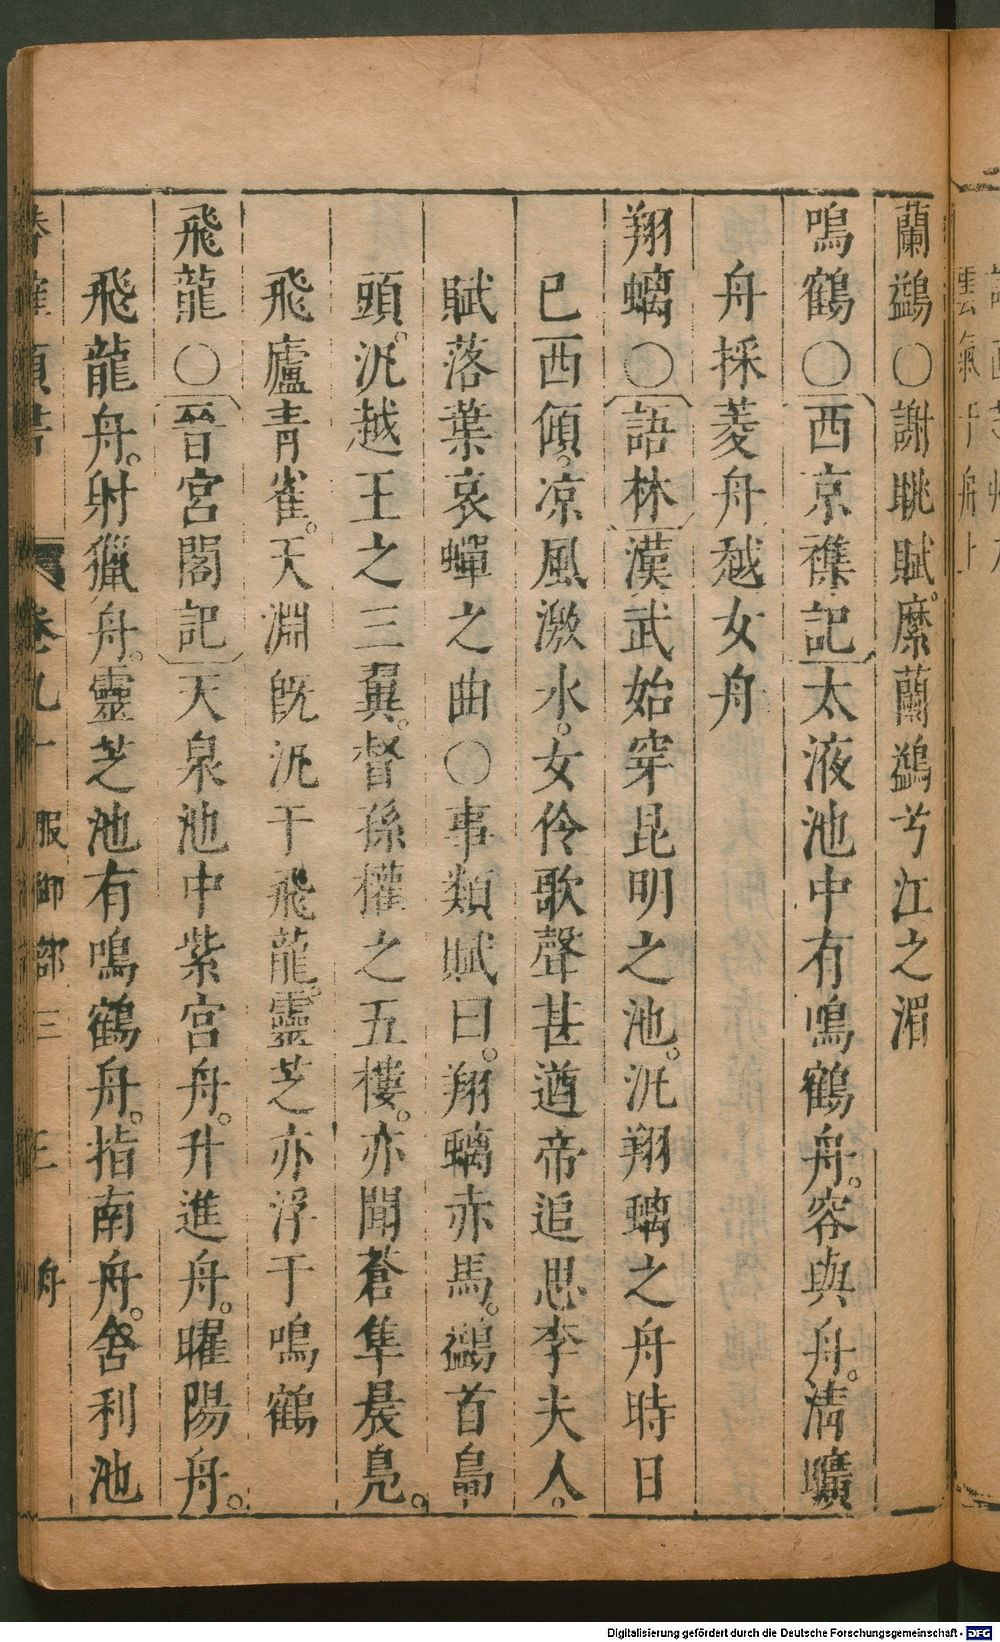 蘭鷁〇謝朓賦。縻蘭鷁兮江之湄
鳴鶴〇西京襍記太液池中有鳴鶴舟。容與舟。淸曠
舟採菱舟越女舟
翔螭〇語林漢武始穿昆明之池。汎翔螭之舟時日
已西傾。凉風激水。女伶歌聲甚遒帝追思李夫人。
賦落葉哀蟬之曲〇事類賦曰。翔螭赤馬。鷁首鳥
頭。汎越王之三翼。督孫權之五樓。亦聞蒼隼晨鳧。
飛廬靑雀。天淵旣汎于飛龍。靈芝亦浮于鳴鶴
飛龍〇晉宮閣記天泉池中紫宮舟。升進舟。曜陽舟。
飛龍舟。射獵舟。靈芝池有鳴鶴舟。指南舟。舍利池
卷九十 服御部三 舟
Digitalisierung gefördert durch die Deutsche Forschungsgemeinschaft - DFG